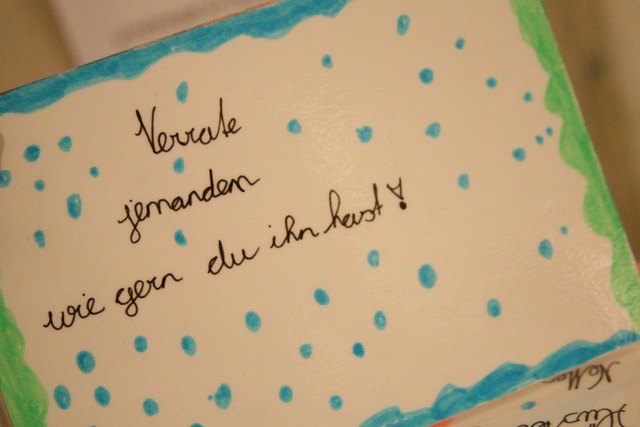 Verrate
jemandem
wie gern du ihn hast!